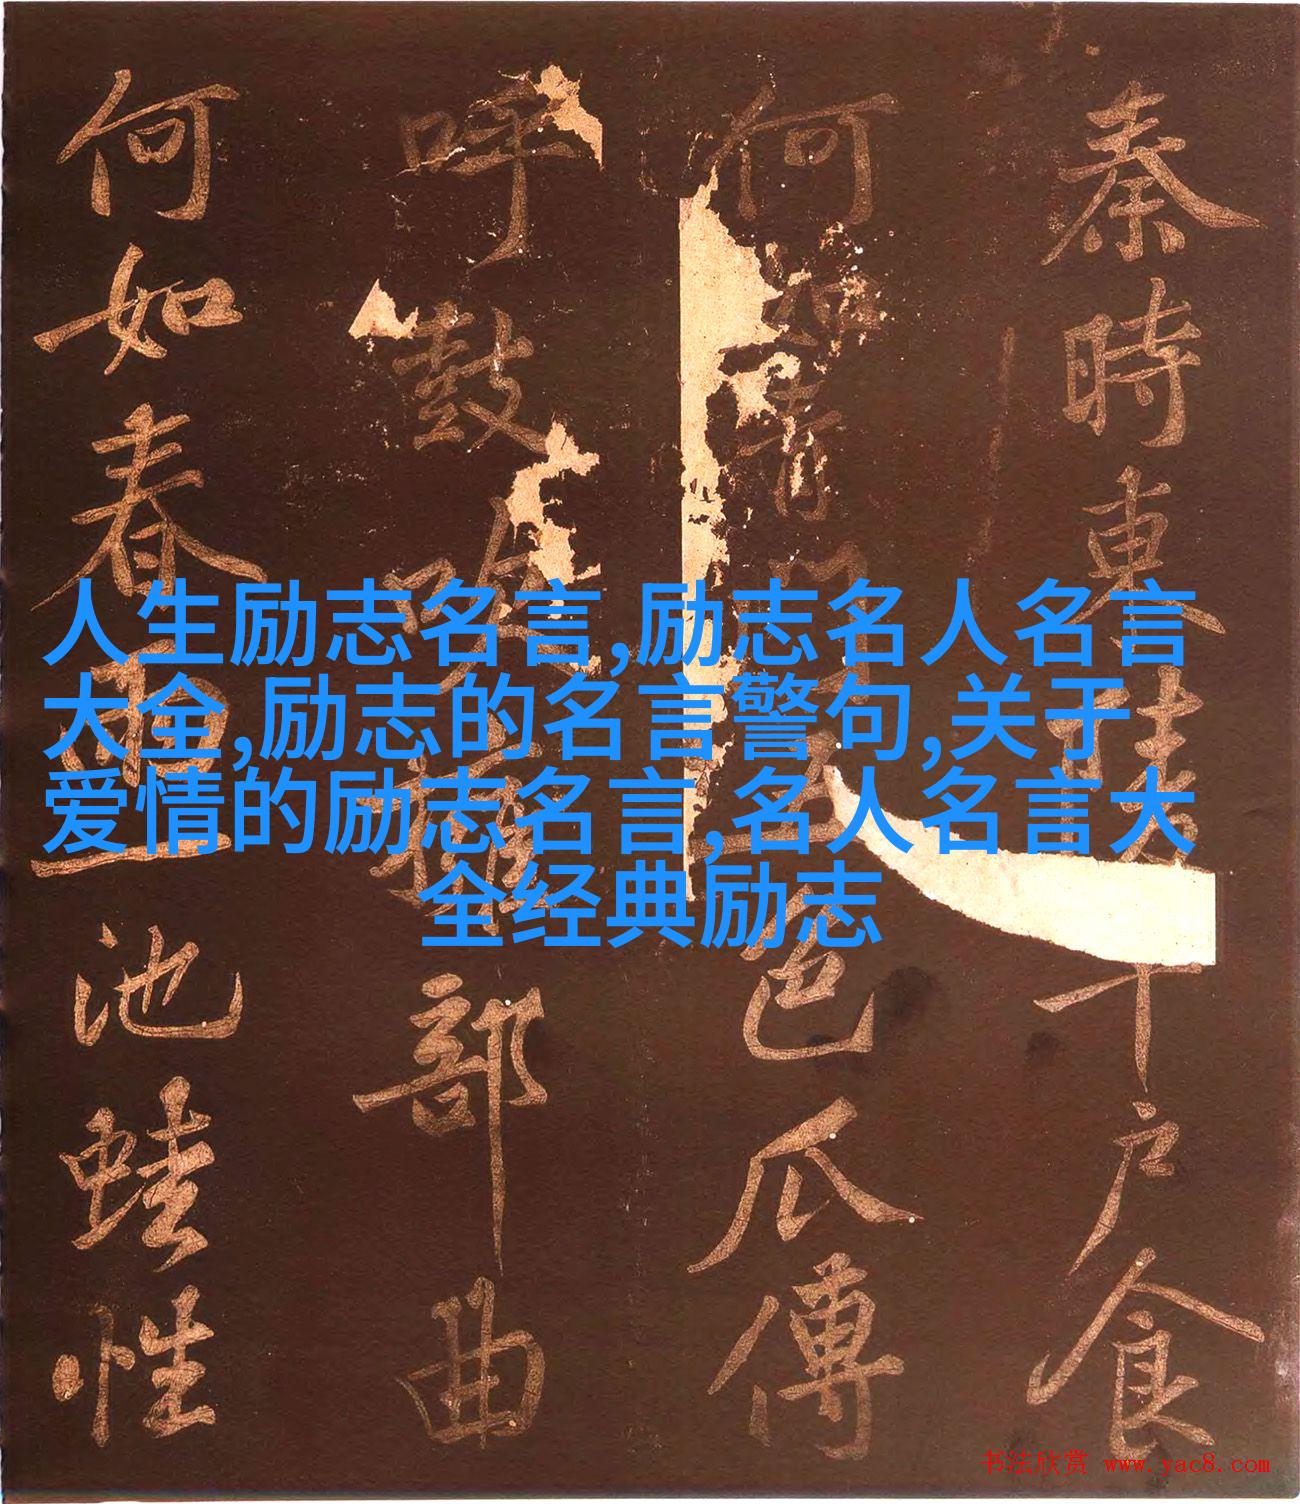 人生励志名言,励志名人名言
大全,励志的名言警句,关于
爱情的励志名言,名人名言大
全经典励志
秦時東陵千戶食
何如青門五色瓜傳
呼鼓吹雜部曲
何如春雨池蛙性
书法欣赏 www.yac8.com